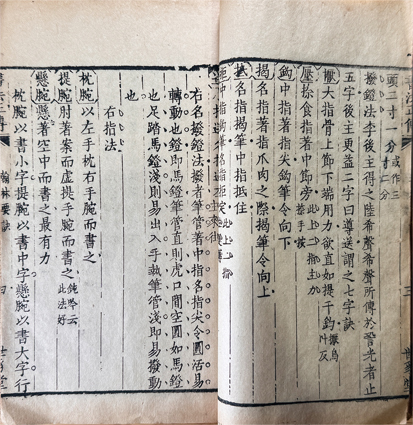 撥鐙法李後主得之陸希聲希聲所傳於晉光者止
五字後主更益二字曰導送謂之七字訣
擫大指骨上節下端用力欲直如提千鈞
壓捺食指著中節旁
此上二指主力
鈎中指著指尖鈎筆令向下
揭名指著指爪肉之際揭筆令向上
抵名指揭筆中指抵住
拒中指鈎筆名指拒定
右名撥鐙法撥者筆管著中指名指尖令圓活易
轉動也鐙即馬鐙筆管直則虎口間空圓如馬鐙
也足踏馬鐙淺則易出入手執筆管淺即易撥動
也
右指法
枕腕以左手枕右手腕而書之
提腕肘著案而虛提手腕而書之
鈍吟云
此法好
懸腕懸著空中而書之最有力
枕腕以書小字提腕以書中字懸腕以書大字行
翰林要訣
四